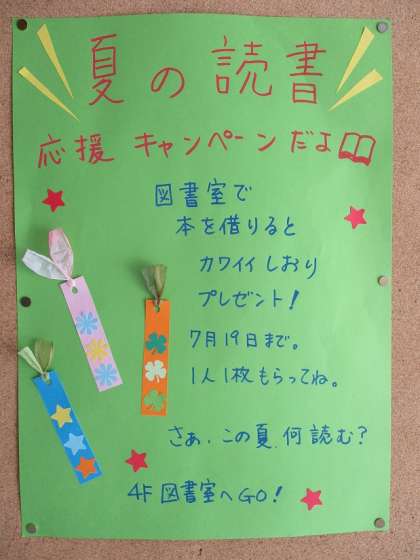 夏の読書
応援 キャンペーンだよ
図書室で
本を借りると
カワイイしおり
プレゼント!
7月19日まで。
1人1枚もらってね。
さあ、この夏、何読む?
4F図書室へGO!